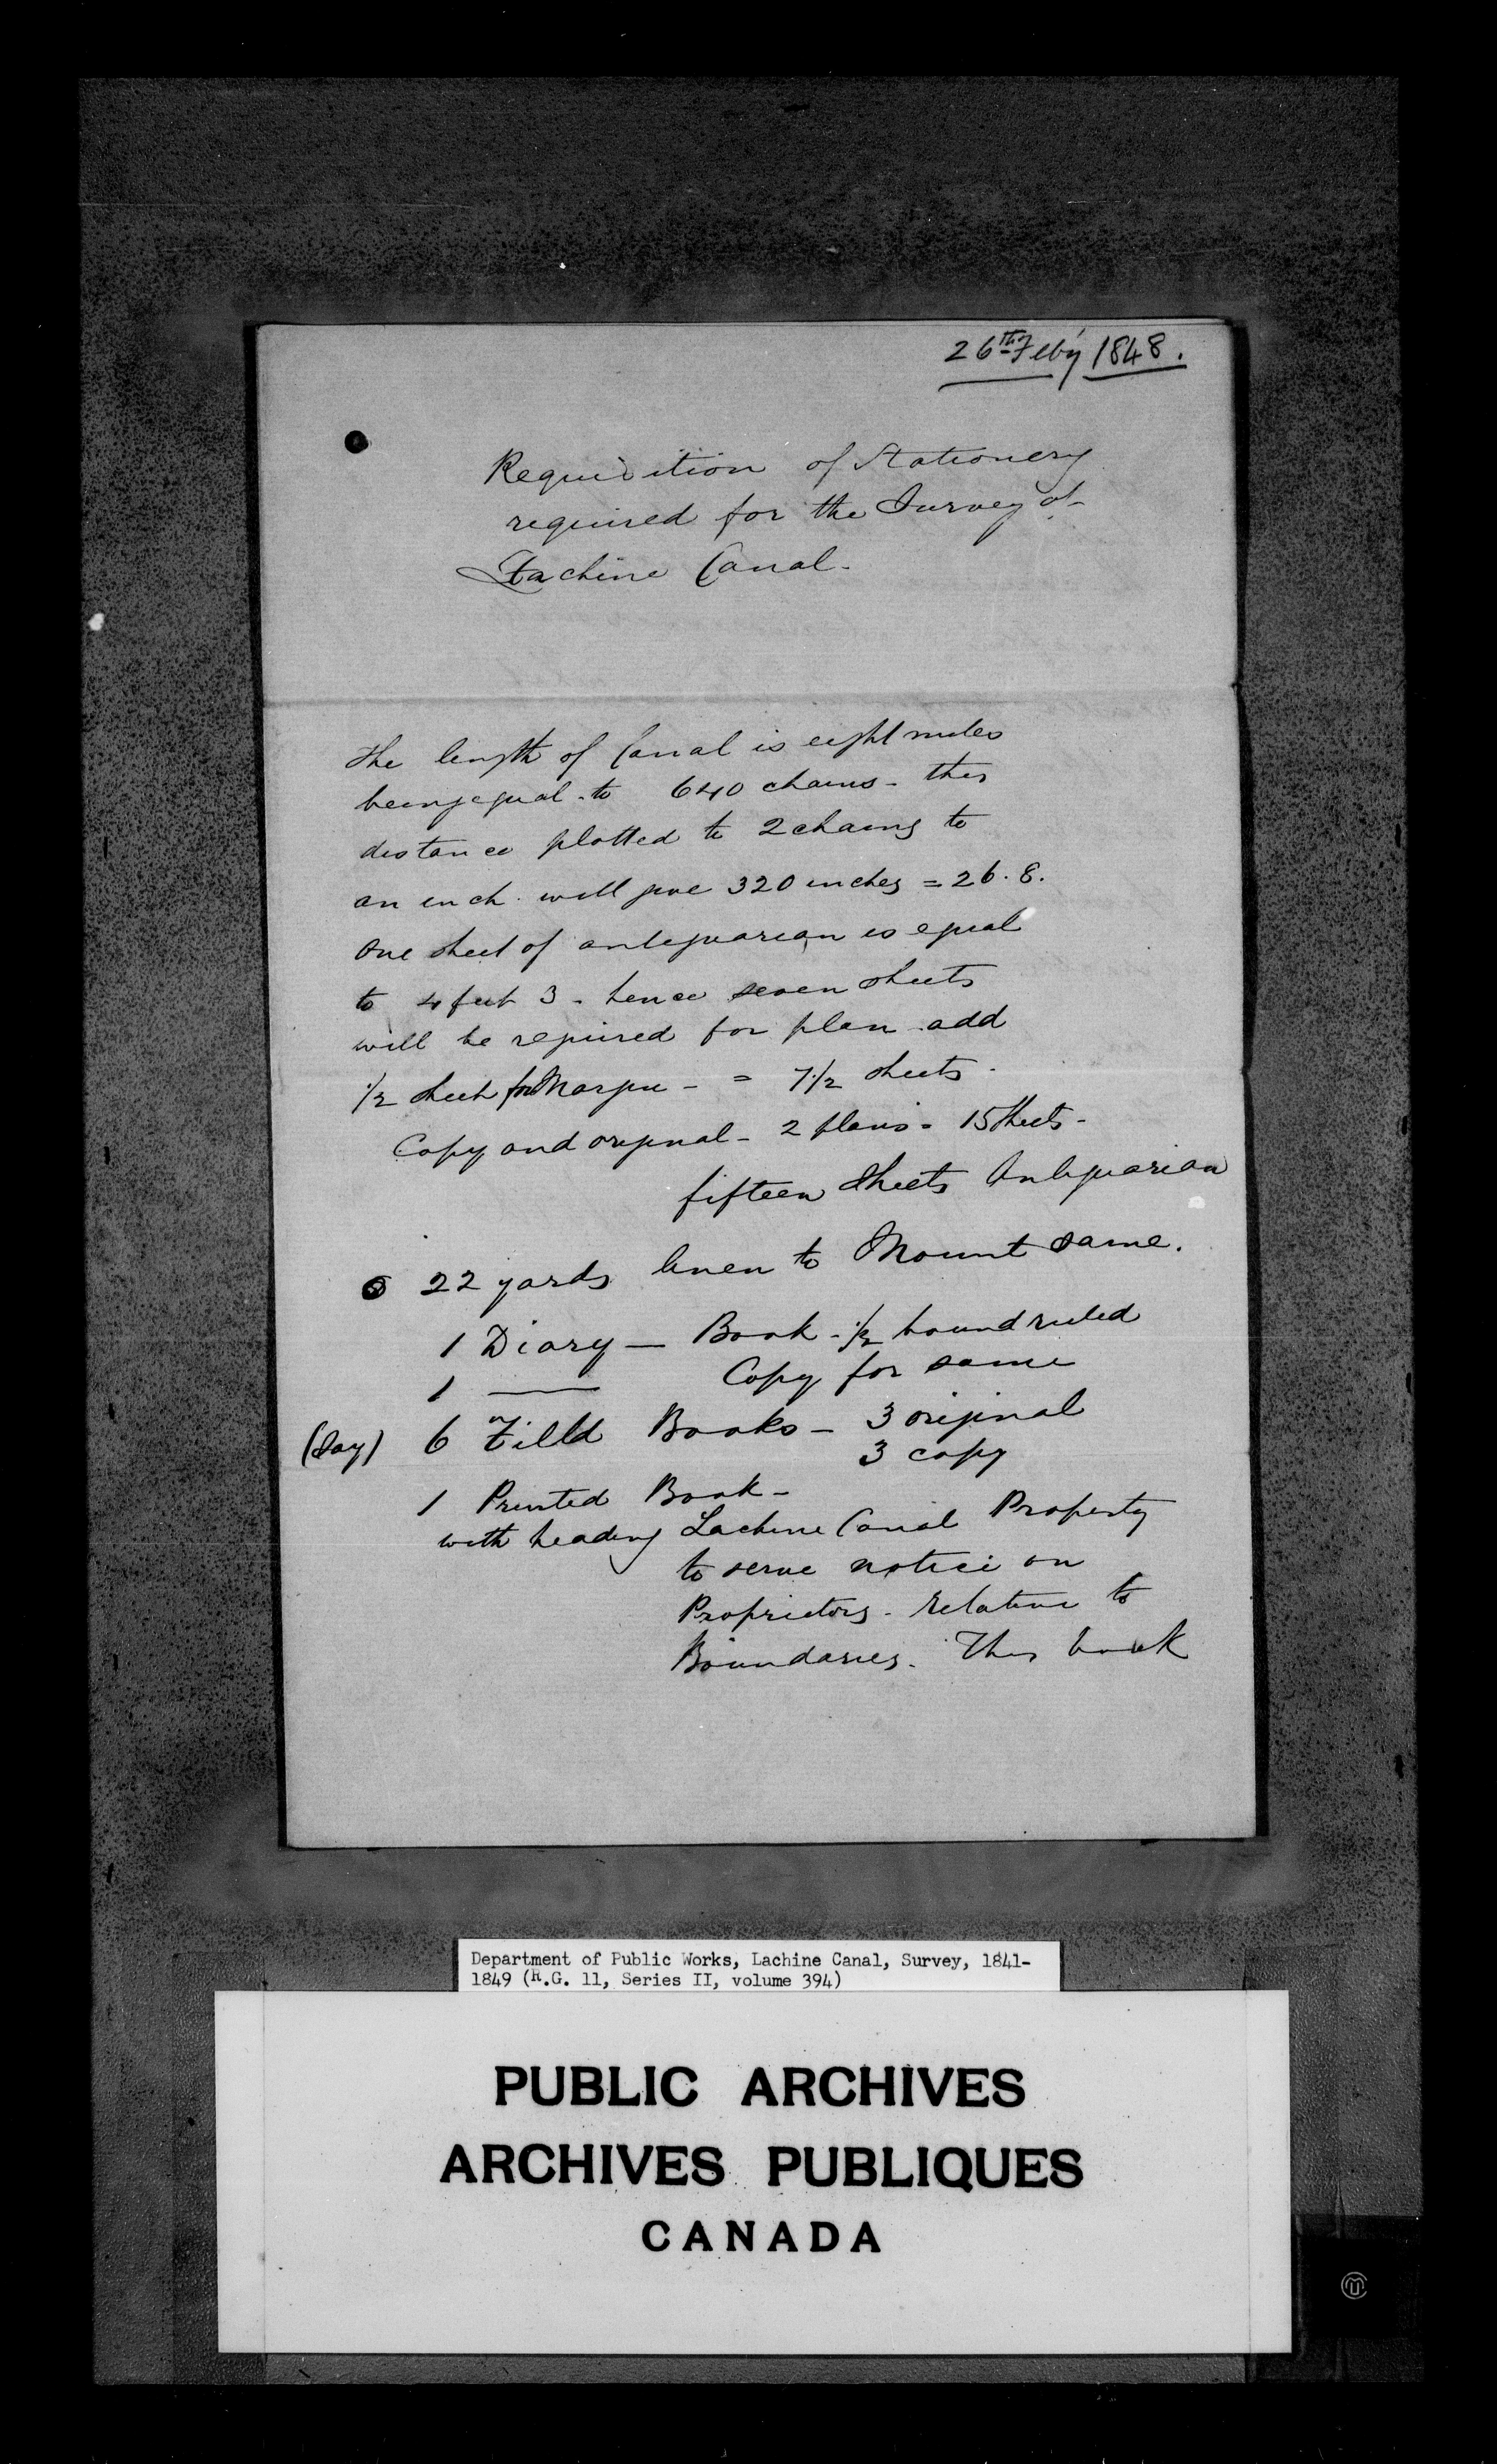 26th Feby 1848.
Requisition of Stationery
required for the Survey of
Lachine Canal.
The length of Canal is eight miles
being equal to 640 chains - this
distance plotted to 2 chains to
an inch will give 320 inches = 26.8.
One sheet of antiquarian is equal
to 4 feet 3 - hence seven sheets
will be required for plan add
1/2 sheet for Margin - = 7 1/2 sheets -
Copy and original - 2 plans = 15 Sheets -
fifteen Sheets Antiquarian
22 yards linen to Mount same.
1 Diary — Book - 1/2 bound ruled
1 — Copy for same
(Say) 6 Field Books - 3 original
3 copy
1 Printed Book -
with heading Lachine Canal Property
to serve notice on
Proprietors - relative to
Boundaries. This book
Department of Public Works, Lachine Canal, Survey, 1841-
1849 (R.G. 11, Series II, volume 394)
PUBLIC ARCHIVES
ARCHIVES PUBLIQUES
CANADA